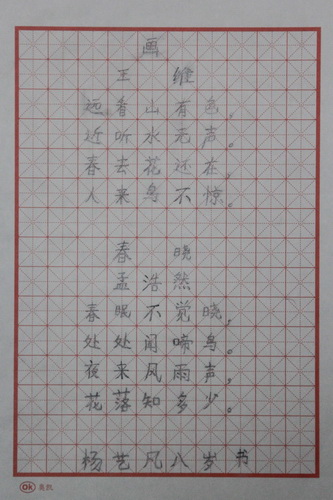 画
王 维
远看山有色，
近听水无声。
春去花还在，
人来鸟不惊。
春 晓
孟浩然
春眠不觉晓，
处处闻啼鸟。
夜来风雨声，
花落知多少。
杨艺凡八岁书
OK